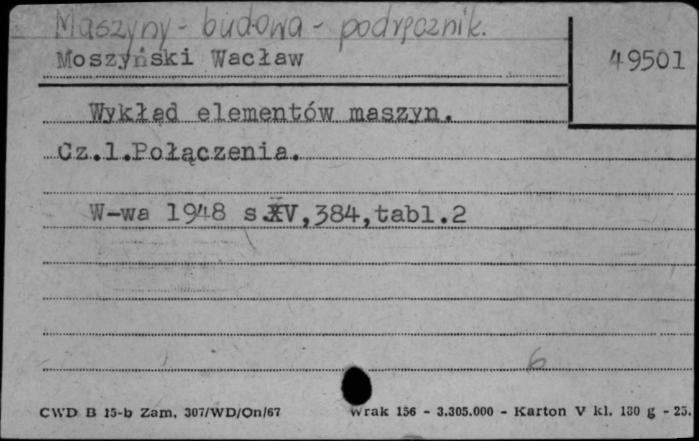 Maszyny - budowa - podręcznik.
Moszyński Wacław 49501
Wykład elementów maszyn.
Cz.1.Połączenia.
W-wa 1948 s.XV,384,tabl.2
6
CWD B 15-b Zam. 307/WD/On/67 Wrak 156 - 3.305.000 - Karton V kl. 180 g - 25.